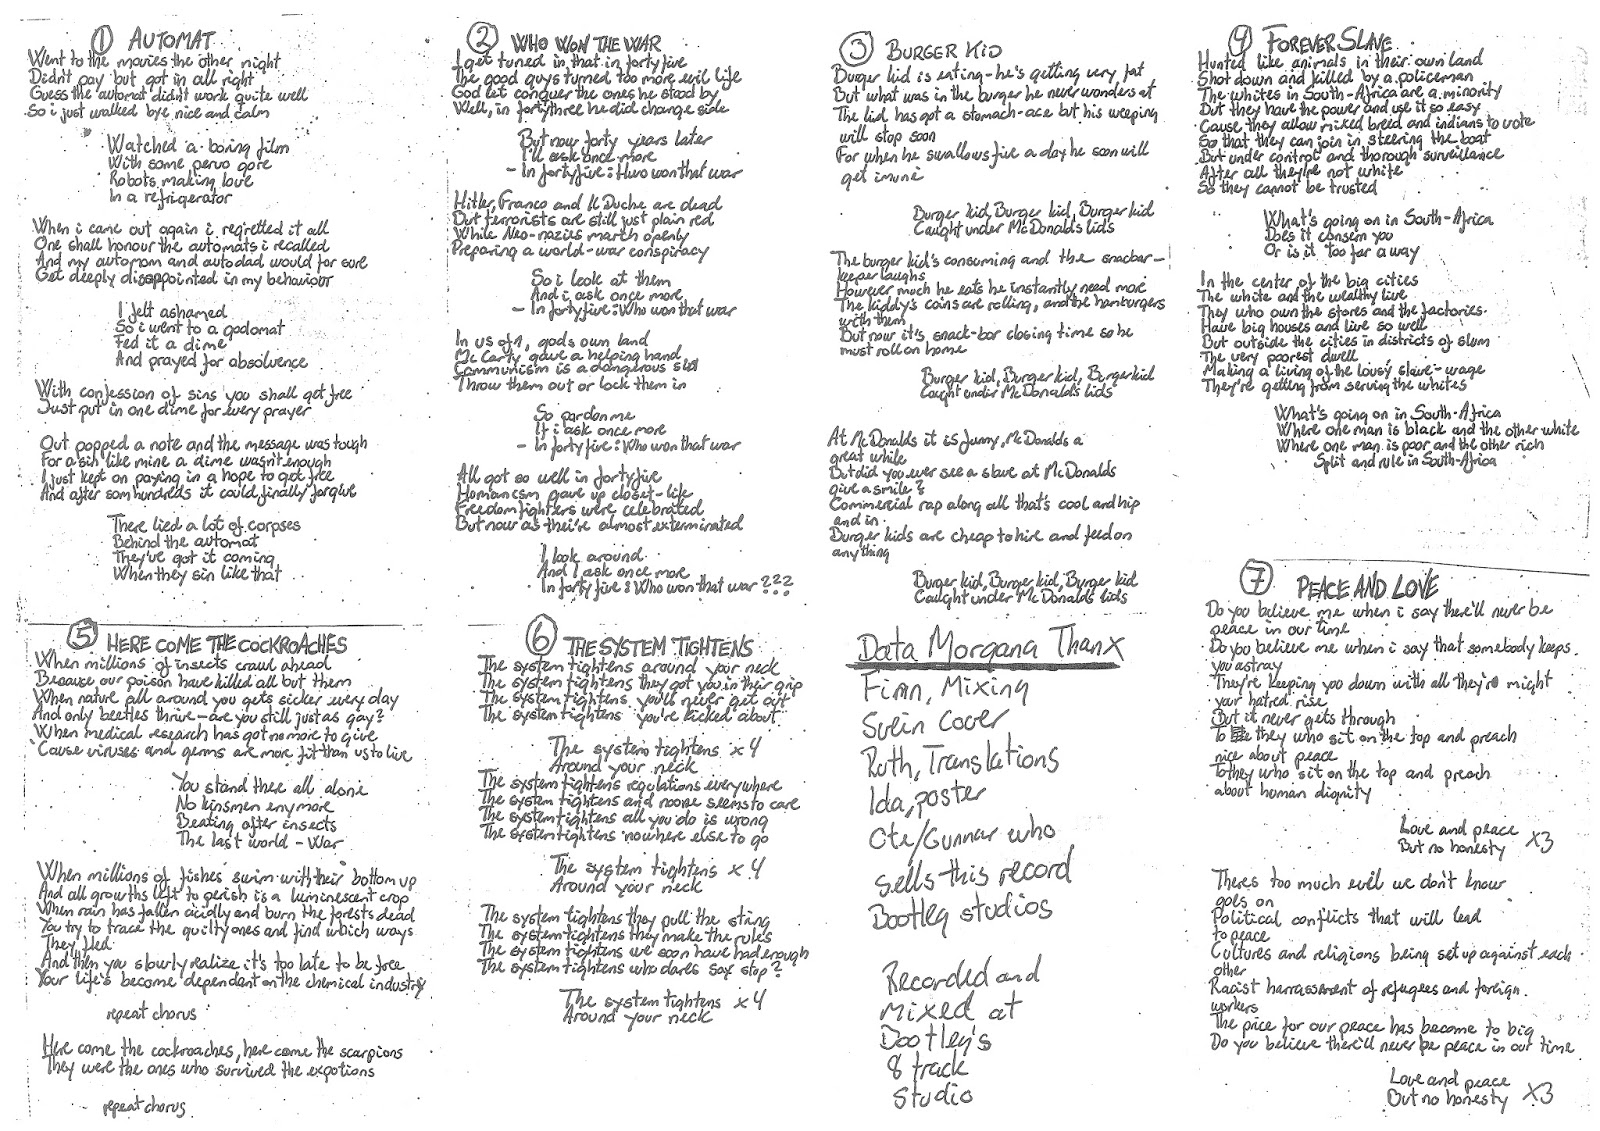 ① AUTOMAT
Went to the movies the other night
Didn't pay but got in all right
Guess the automat didn't work quite well
So i just walked bye nice and calm
Watched a boring film
With some pervo gore
Robots making love
In a refrigerator
When i came out again i regretted it all
One shall honour the automats i recalled
And my automom and autodad would for sure
Get deeply disappointed in my behaviour
I felt ashamed
So i went to a godomat
Fed it a dime
And prayed for absolvence
With confession of sins you shall get free
Just put in one dime for every prayer
Out popped a note and the message was tough
For a sin like mine a dime wasn't enough
I just kept on paying in a hope to get free
And after som hundreds it could finally forgive
There lied a lot of corpses
Behind the automat
They've got it coming
When they sin like that
② WHO WON THE WAR
I got tuned in that in fortyfive
The good guys turned too more evil life
God let conquer the ones he stood by
Well, in fortythree he did change side
But now forty years later
I'll ask once more
- In fortyfive: Who won that war
Hitler, Franco and Il Duche are dead
But terrorists are still just plain red
While Neo-nazies march openly
Preparing a world-war conspiracy
So i look at them
And i ask once more
- In fortyfive: Who won that war
In us of A, gods own land
Mc Carty gave a helping hand
Communism is a dangerous
Throw them out or lock them in
So pardon me
If i ask once more
- In fortyfive: Who won that war
All got so well in fortyfive
Homanism gave up closet-life
Freedom fighters were celebrated
But now as their're almost exterminated
I look around
And I ask once more
In fortyfive: Who won that war ???
③ BURGER KID
Burger kid is eating - he's getting very fat
But what was in the burger he never wonders at
The kid has got a stomach-ace but his weeping
will stop soon
For when he swallows five a day he soon will
get imune
Burger kid, Burger kid, Burger kid
Caught under McDonald's lids
The burger kid's consuming and the snacbar-
keeper laughs
However much he eats he instantly need more
The kiddy's coins are rolling, and the hamburgers
with them
But now it's, snack-bar closing time so he
must roll on home
Burger kid, Burger kid, Burger kid
Caught under McDonald's lids
At McDonalds it is funny, McDonalds a
great while
But did you ever see a slave at McDonalds
give a smile?
Commercial rap along all that's cool and hip
and in
Burger kids are cheap to hire and feed on
anything
Burger kid, Burger kid, Burger kid
Caught under McDonalds lids
④ FOREVER SLAVE
Hunted like animals in their own land
Shot down and killed by a policeman
The whites in South-Africa are a minority
But they have the power and use it so easy
Cause they allow mixed breed and indians to vote
So that they can join in steering the boat
But under control and thorough surveillance
After all they're not white
So they cannot be trusted
What's going on in South-Africa
Does it consern you
Or is it too far a way
In the center of the big cities
The white and the wealthy live
They who own the stores and the factories
Have big houses and live so well
But outside the cities in districts of slum
The very poorest dwell
Making a living of the lousy slave-wage
They're getting from serving the whites
What's going on in South-Africa
Where one man is black and the other white
Where one man is poor and the other rich
Split and rule in South-Africa
⑤ HERE COME THE COCKROACHES
When millions of insects crawl ahead
Because our poison have killed all but them
When nature all around you gets sicker every day
And only beetles thrive - are you still just as gay?
When medical research has got no more to give
'Cause viruses and germs are more fit than us to live
You stand there all alone
No kinsmen enymore
Beating after insects
The last world - War
When millions of fishes swim with their bottom up
And all growths left to perish is a luminescent crop
When rain has fallen acidly and burn the forests dead
You try to trace the guilty ones and find which ways
They fled
And then you slowly realize it's too late to be free
Your life's become dependant on the chemical industry
repeat chorus
Here come the cockroaches, here come the scarpions
They were the ones who survived the expotions
repeat chorus
⑥ THE SYSTEM TIGHTENS
The system tightens around your neck
The system tightens they got you in their grip
The system tightens you'll never get out
The system tightens you're kicked about
The system tightens x4
Around your neck
The system tightens regulations everywhere
The system tightens and noone seems to care
The system tightens all you do is wrong
The system tightens nowhere else to go
The system tightens x4
Around your neck
The system tightens they pull the string
The system tightens they make the rules
The system tightens we soon have had enough
The system tightens who dares say stop?
The system tightens x4
Around your neck
Data Morgana Thanx
Finn, Mixing
Svein cover
Ruth, Translations
Ida, poster
Ote/Gunnar who
sells this record
Bootleg studios
Recorded and
mixed at
Bootleg's
8 track
studio
⑦ PEACE AND LOVE
Do you believe me when i say there'll never be
peace in our time
Do you believe me when i say that somebody keeps
you astray
They're keeping you down with all they're might
your hatred rise
But it never gets through
To they who sit on the top and preach
nice about peace
To they who sit on the top and preach
about human dignity
Love and peace
But no honesty x3
Theres too much evil we don't know
goes on
Political conflicts that will lead
to peace
Cultures and religions being set up against each
other
Racist harrassment of refugees and foreign
workers
The price for our peace has become to big
Do you believe there'll never be peace in our time
Love and peace
But no honesty x3